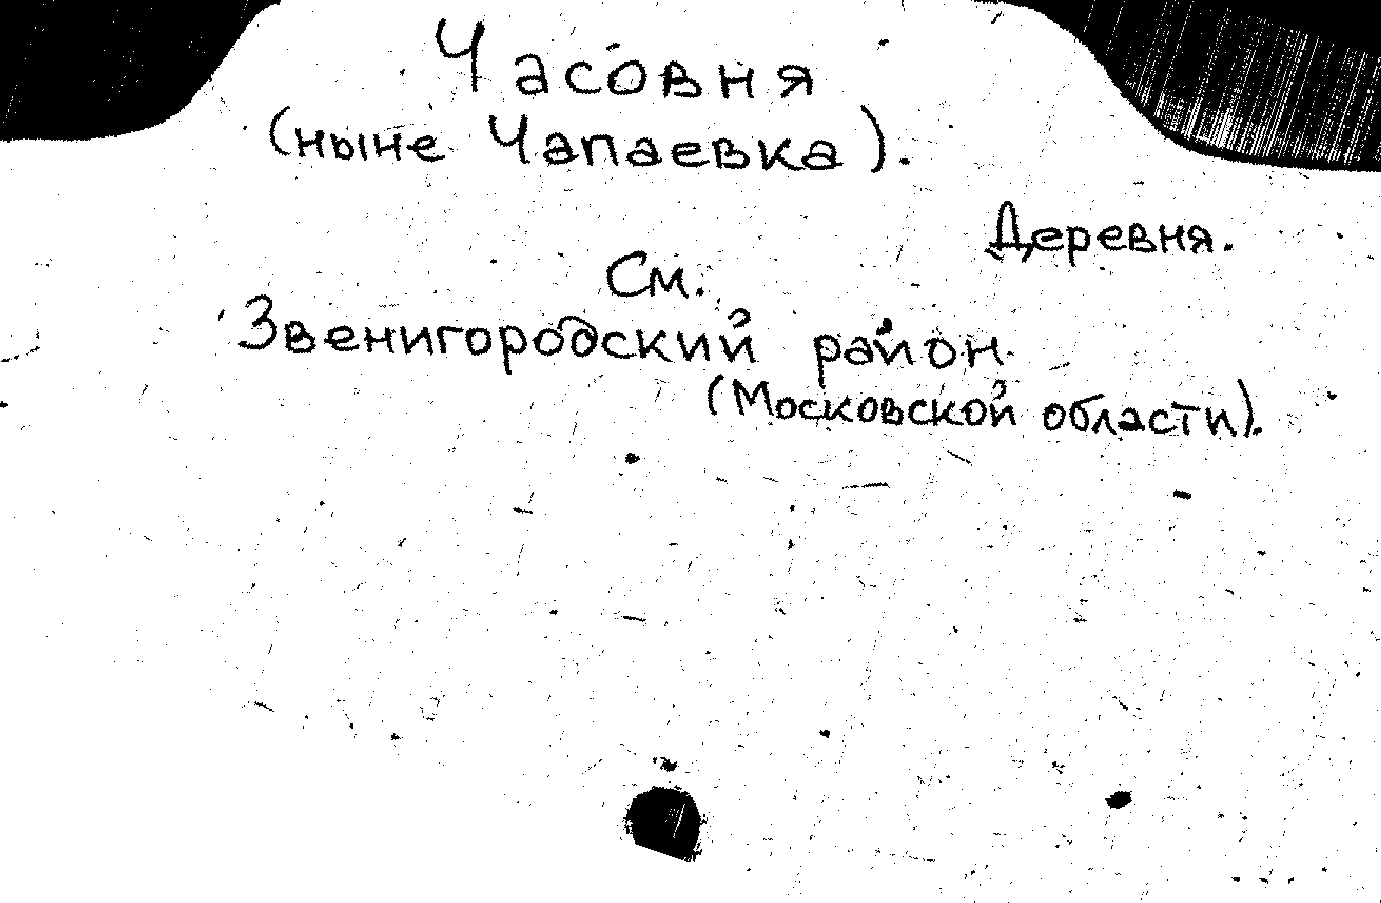 Часовня
(ныне Чапаевка).
Деревня.
См.
Звенигородский район
(Московской области).